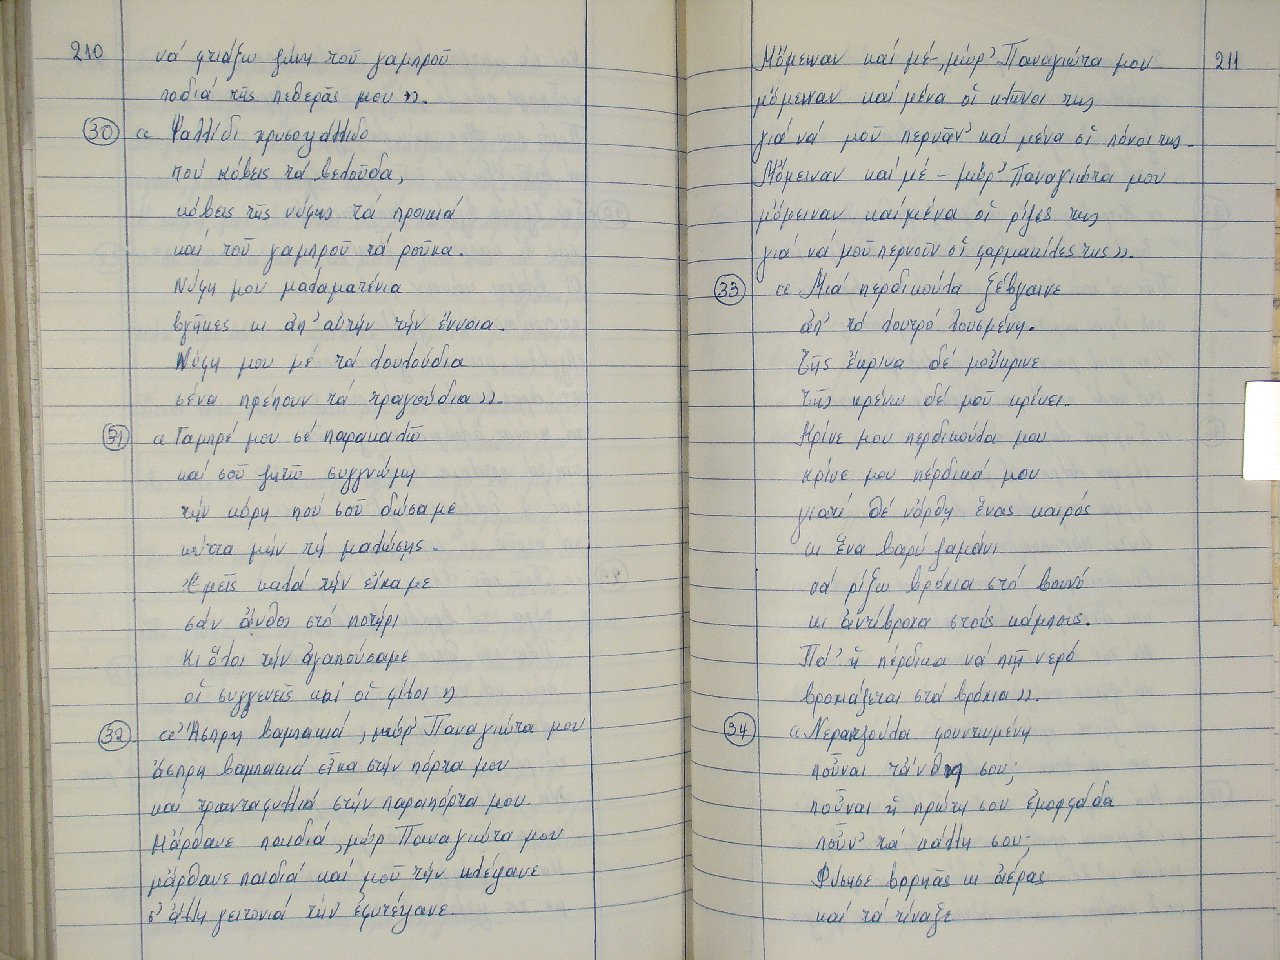 210
νά φτιάξω ζώνη τοῦ γαμπροῦ
ποδιά τῆς πεθερᾶς μου».
30 « Ψαλλίδι χρυσοψάλλιδο
πού κόβεις τά βελοῦδα,
κόβεις τῆς νύφης τά προικιά
καί τοῦ γαμπροῦ τά ροῦχα.
Νύφη μου μαλαματένια
βγῆκες κι ἀπ' αὐτήν τήν ἔννοια.
Νύφη μου μέ τά λουλούδια
σένα πρέπουν τά τραγούδια».
31 « Γαμπρέ μου σέ παρακαλῶ
καί σοῦ ζητῶ συγγνώμη
τήν κόρη πού σοῦ δώσαμε
κύττα μήν τή μαλώσης.
Ἐμεῖς καλά τήν εἴχαμε
σάν ἄνθος στό ποτήρι
κι ὅλοι τήν ἀγαπούσαμε
οἱ συγγενεῖς καί οἱ φίλοι»
32 « Ἄσπρη βαμπακιά, μώρ' Παναγιώτα μου
ἄσπρη βαμπακιά εἶχα στήν πόρτα μου
καί τρανταφυλλιά στήν παραπόρτα μου.
Μἄρθανε παιδιά, μώρ Παναγιώτα μου
μἄρθανε παιδιά καί μοῦ τήν κλέψανε
σ' ἄλλη γειτονιά τήν ἐφυτέψανε.
211
Μὄμειναν καί μέ-, μώρ' Παναγιώτα μου
μὄμειναν καί μένα οἱ κλῶνοι της
γιά νά μοῦ περνᾶν' καί μένα οἱ πόνοι της.
Μὄμειναν καί μέ - μώρ' Παναγιώτα μου
μὄμειναν καί μένα οἱ ρίζες της
γιά νά μοῦ περνοῦν οἱ φαρμακίλες της».
33 « Μιά περδικούλα ξέβγαινε
ἀπ' τό λουτρό λουσμένη.
Τῆς ἔκρινα δέ μοὔκρινε
τῆς κρένω δέ μοῦ κρένει.
Κρίνε μου περδικούλα μου
κρίνε μου πέρδικά μου
γιατί θέ νἄρθη ἕνας καιρός
κι ἕνα βαρύ ζαμάνι
νά ρίξω βρόχια στό βουνό
κι ἀντίβροχα στούς κάμπους.
Πά' ἡ πέρδικα νά πιῆ νερό
βροχιάζεται στά βρόχια».
34 « Νερατζούλα φουντωμένη
ποὖναι τἄνθη σου;
ποὖναι ἡ πρώτη σου ἐμορφάδα
ποὖν' τά κάλλη σου;
Φύσησε βορηᾶς κι ἀέρας
καί τά τίναξε